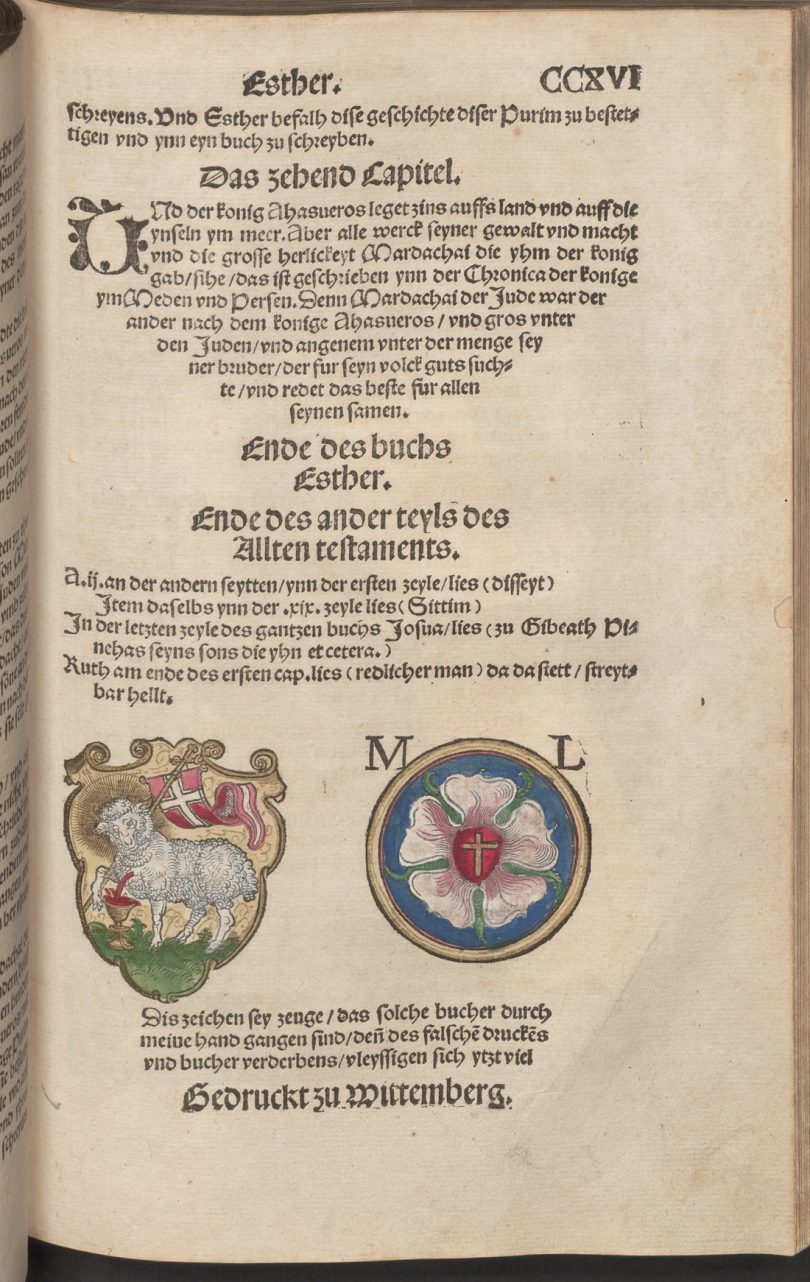 Esther. CCXVI
schreyens. Vnd Esther befalh dise geschichte diser Purim zu bestet⸗
tigen vnd ynn eyn buch zu schreyben.
Das zehend Capitel.
UNd der konig Ahasueros leget zins auffs land vnd auff die
ynseln ym meer. Aber alle werck seyner gewalt vnd macht
vnd die grosse herlickeyt Mardachai die yhm der konig
gab/sihe/das ist geschrieben ynn der Chronica der konige
ym Meden vnd Persen. Denn Mardachai der Jude war der
ander nach dem konige Ahasueros/vnd gros vnter
den Juden/vnd angenem vnter der menge sey
ner bruder/der fur seyn volck guts such⸗
te/vnd redet das beste fur allen
seynen samen.
Ende des buchs
Esther.
Ende des ander teyls des
Allten testaments.
A.ij. an der andern seytten/ynn der ersten zeyle/lies (disseyt)
Item daselbs ynn der .xix. zeyle lies (Sittim)
In der letzten zeyle des gantzen buchs Josua/lies (zu Gibeath Pi⸗
nehas seyns sons die yhn et cetera.)
Ruth am ende des ersten cap. lies (redlicher man) da da stett/streyt⸗
bar hellt.
M L
Dis zeichen sey zeuge/das solche bucher durch
meine hand gangen sind/deñ des falschẽ druckẽs
vnd bucher verderbens/vleyssigen sich ytzt viel
Gedruckt zu Wittemberg.